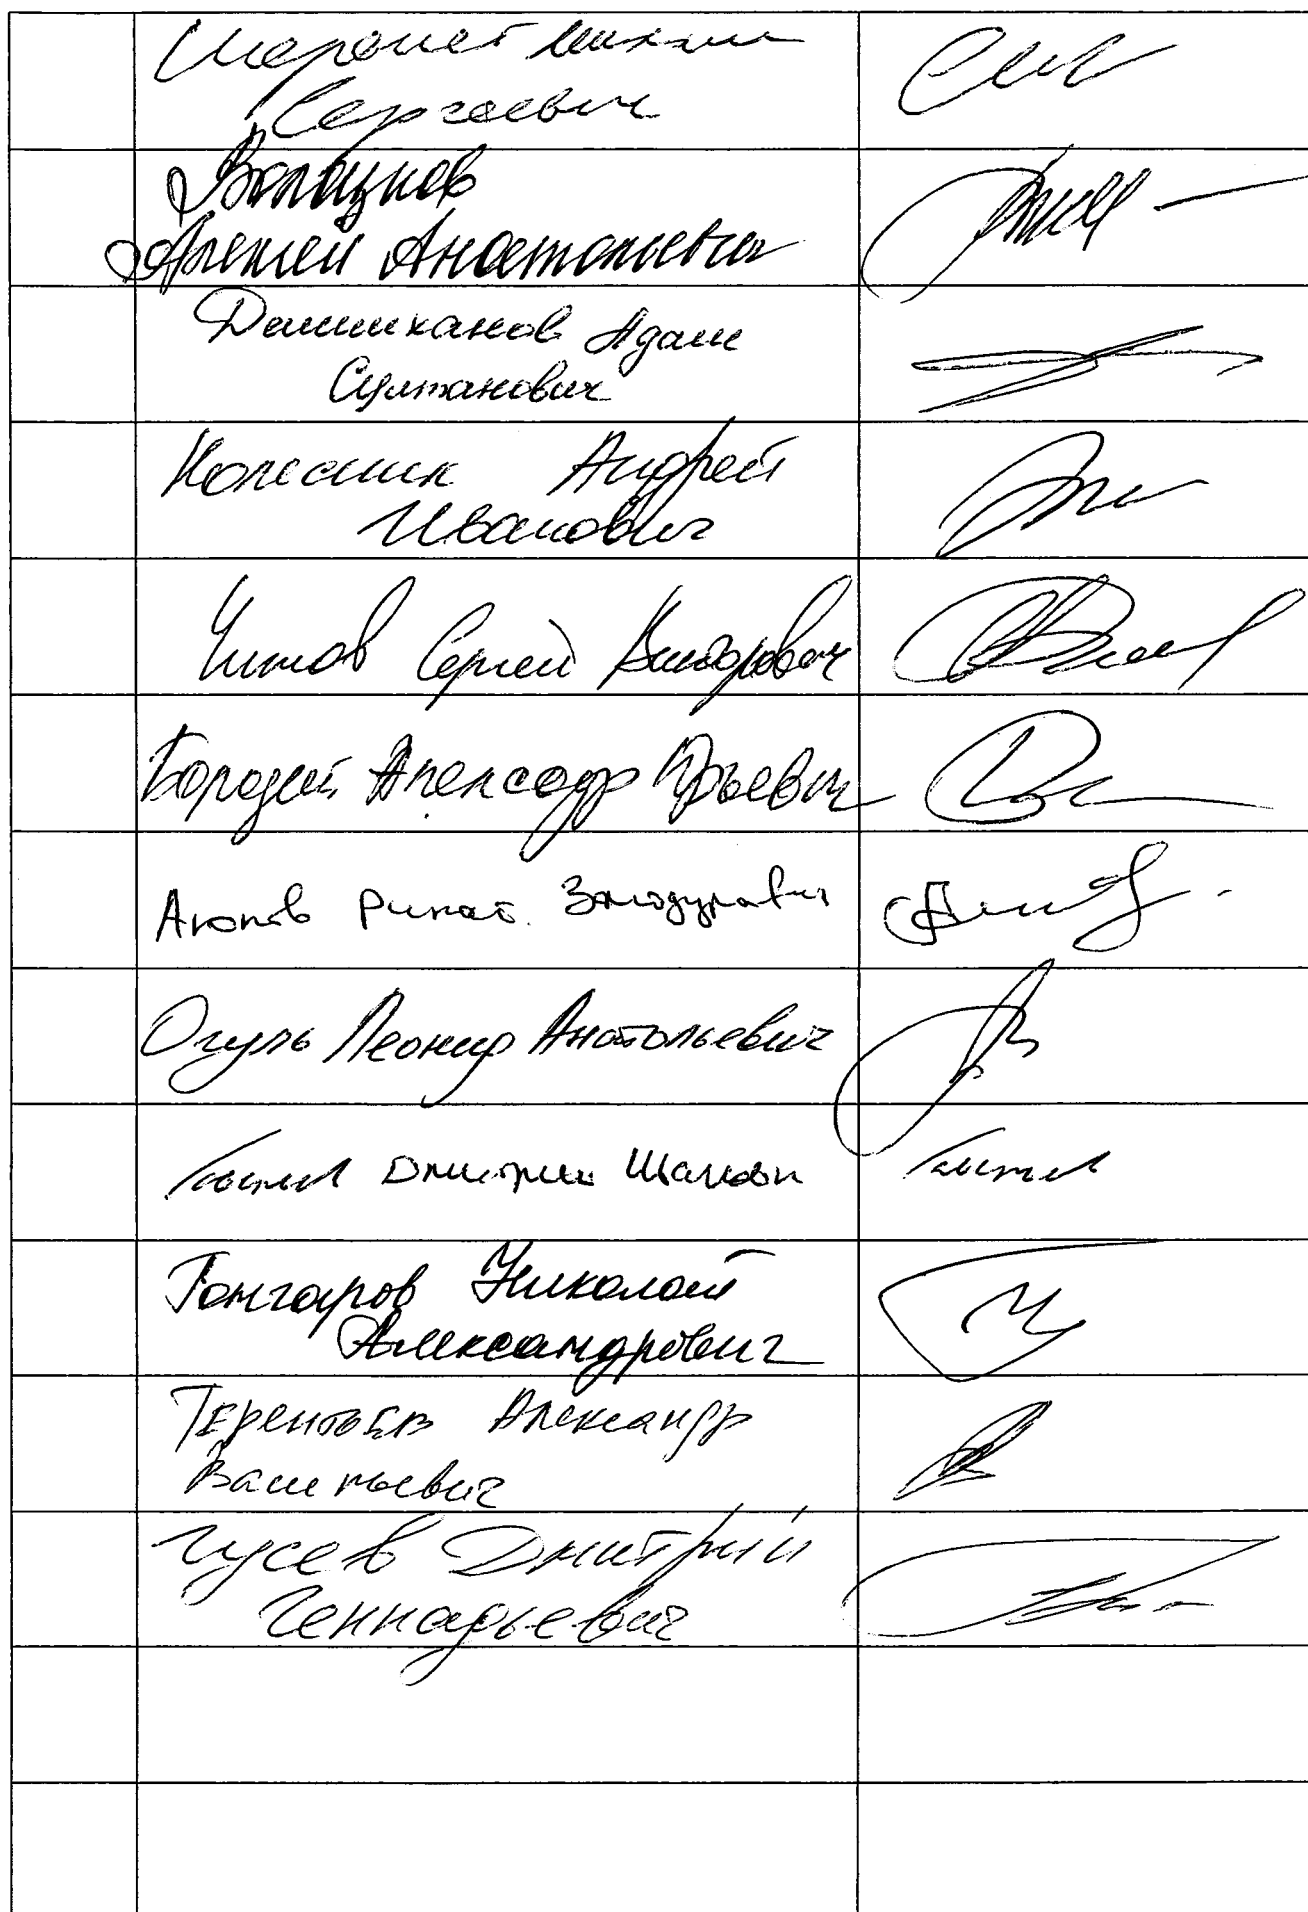 Шеремет Михаил
Сергеевич
Волоцков
Алексей Анатольевич
Делимханов Адам
Султанович
Колесник Андрей
Иванович
Чижов Сергей Викторович
Бородай Александр Юрьевич
Аюпов Ринат Зайдулаевич
Огуль Леонид Анатольевич
Дмитрий
Гончаров Николай
Александрович
Терентьев Александр
Васильевич
Гусев Дмитрий
Геннадьевич